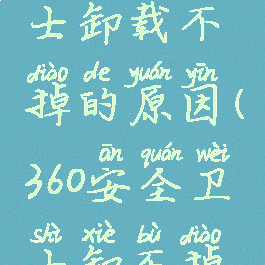 士卸载不
diào de yuán yīn
掉的原因(
ān quán wèi
360安全卫
shì xiè bù diào
士卸不掉